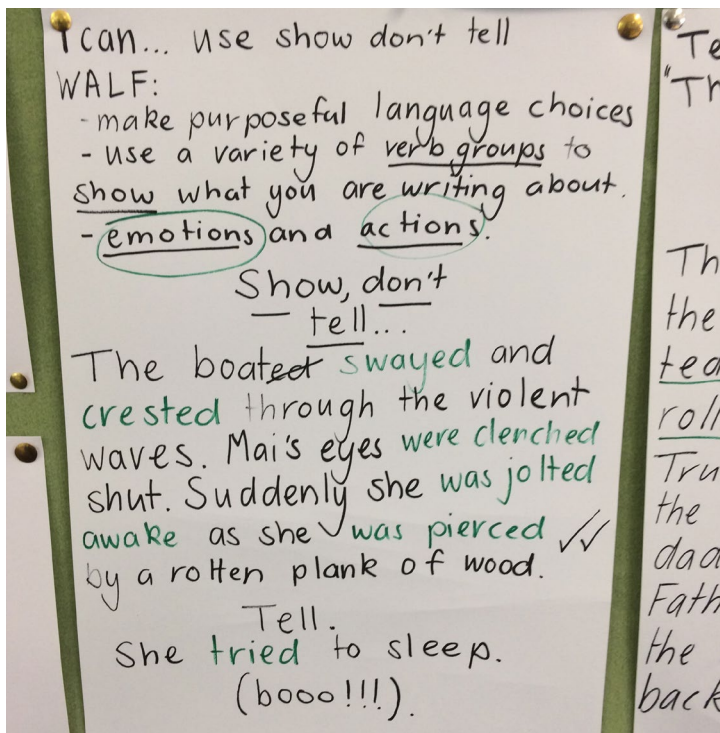 I can... use show don't tell
WALF:
- make purposeful language choices
- use a variety of verb groups to
show what you are writing about.
- emotions and actions.
Show, don't
tell...
The boat swayed and
crested through the violent
waves. Mai's eyes were clenched
shut. Suddenly she was jolted
awake as she was pierced
by a rotten plank of wood.
Tell.
She tried to sleep.
(booo!!!).
"Th
Th
the
roll
Tru
the
Fath
the
back